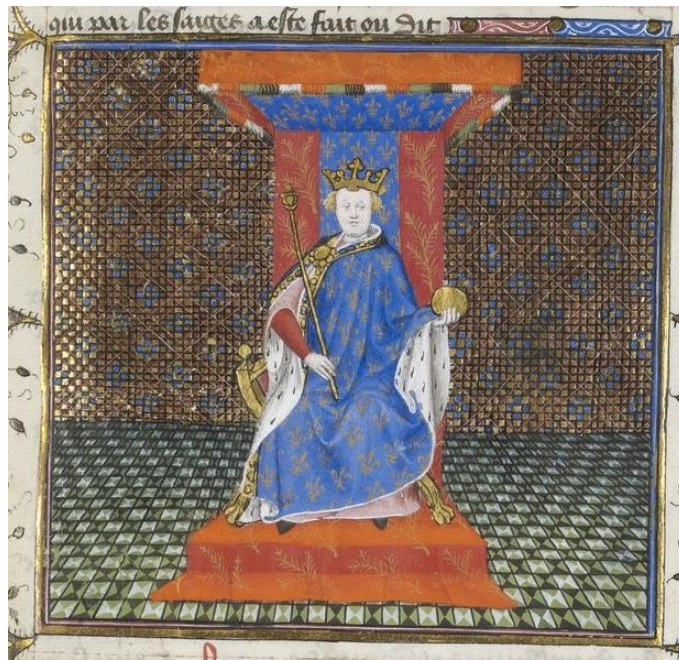 qui par les saiges a este fait ou dit